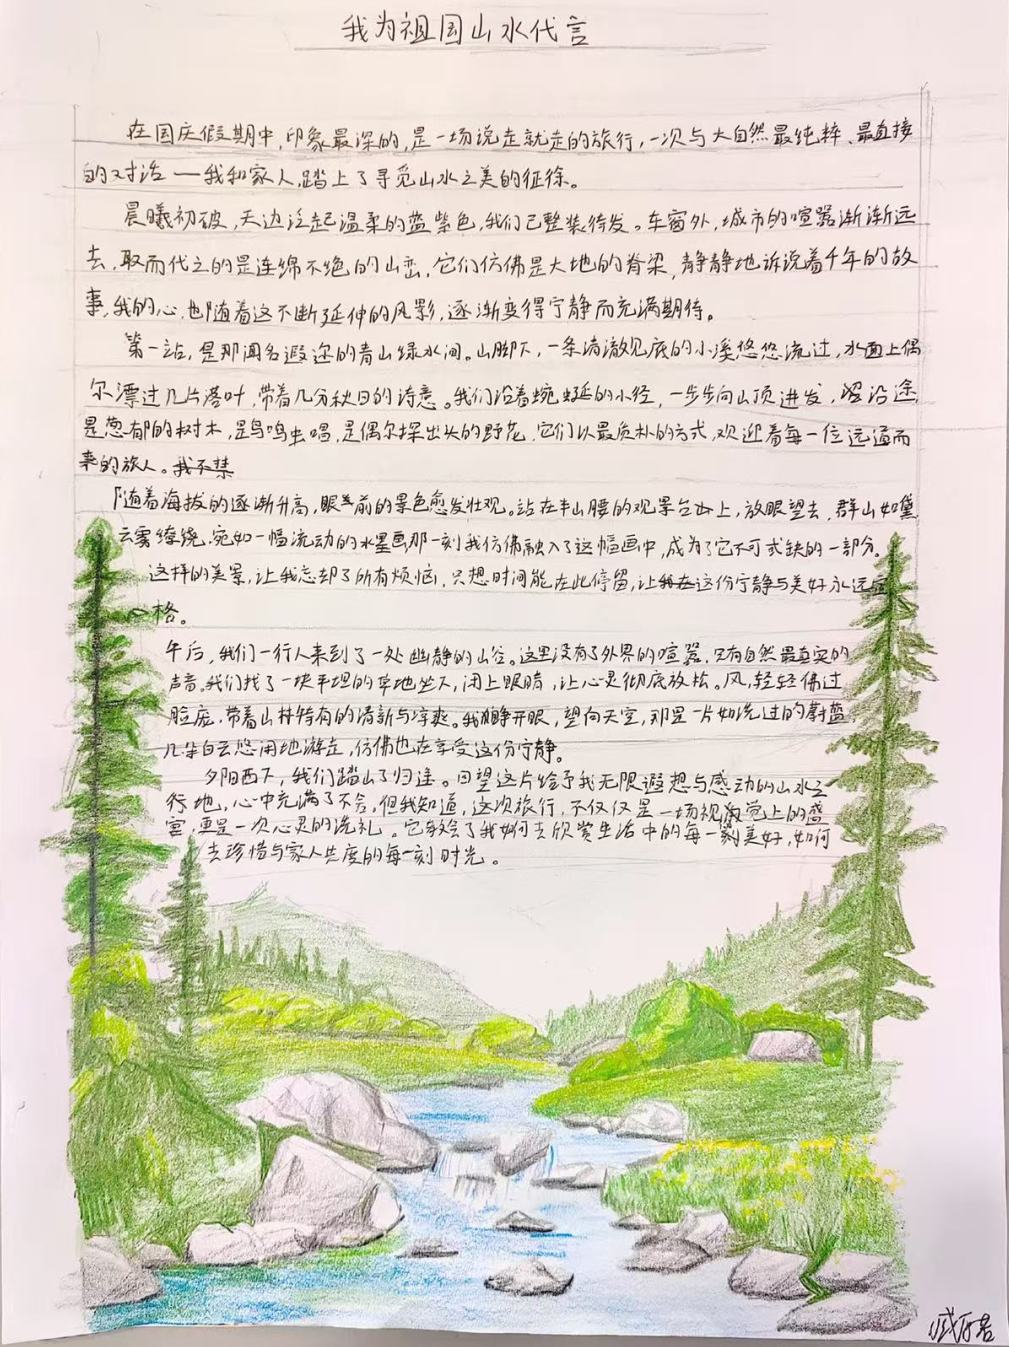 我为祖国山水代言
在国庆假期中,印象最深的,是一场说走就走的旅行,一次与大自然最纯粹、最直接
的对话——我和家人,踏上了寻觅山水之美的征徐。
晨曦初破,天边泛起温柔的蓝紫色,我们已整装待发。车窗外,城市的喧嚣渐渐远
去,取而代之的是连绵不绝的山峦,它们仿佛是大地的脊梁,静静地诉说着千年的故
事,我的心,也随着这不断延伸的风影,逐渐变得宁静而充满期待。
第一站,是那闻名遐迩的青山绿水间。山脚下,一条清澈见底的小溪悠悠流过,水面上偶
尔漂过几片落叶,带着几分秋日的诗意。我们沿着蜿蜒的小径,一步步向山顶进发,沿途,
是葱郁的树木,是鸟鸣虫唱,是偶尔探出头的野花,它们以最质朴的方式,欢迎着每一位远道而
来的旅人。我不禁
随着海拔的逐渐升高,眼前的景色愈发壮观。站在半山腰的观景台上,放眼望去,群山如黛
云雾缭绕,宛如一幅流动的水墨画那一刻我仿佛融入了这幅画中,成为了它不可或缺的一部分。
这样的美景,让我忘却了所有烦恼,只想时间能在此停留,让这份宁静与美好永远定
格。
午后,我们一行人来到了一处幽静的山谷。这里没有了外界的喧嚣,只有自然最真实的
声音。我们找了一块平坦的草地坐下,闭上眼睛,让心灵彻底放松。风,轻轻拂过
脸庞,带着山林特有的清新与凉爽。我睁开眼,望向天空,那是一片如洗过的蔚蓝,
几朵白云悠闲地游走,仿佛也在享受这份宁静。
夕阳西下,我们踏上了归途。回望这片给予我无限遐想与感动的山水之
行地,心中充满了不舍,但我知道,这次旅行,不仅仅是一场视觉上的盛
宴,更是一次心灵的洗礼。它教会了我如何去欣赏生活中的每一刻美好,如何
去珍惜与家人共度的每一刻时光。